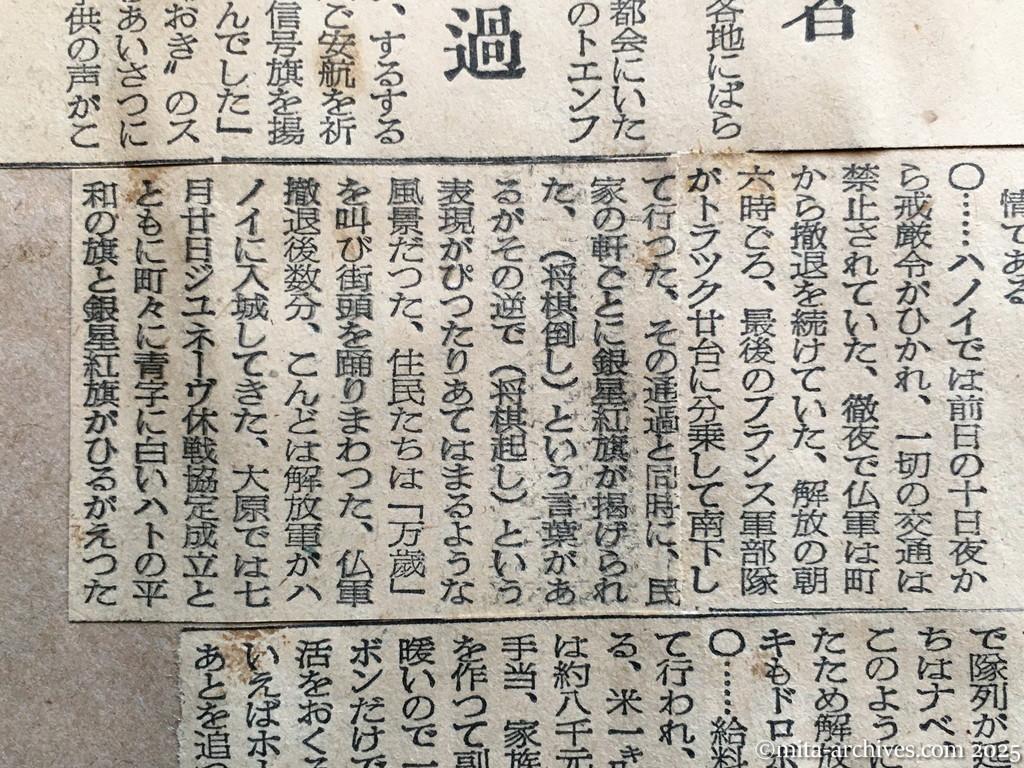 名
各地にばら
都会にいた
のトエンフ
過
、するする
ご安航を祈
信号旗を揚
んでした」
おき〃のス
あいさつに
供の声がこ
情である
〇……ハノイでは前日の十日夜か
ら戒厳令がひかれ、一切の交通は
禁止されていた、徹夜で仏軍は町
から撤退を続けていた、解放の朝
六時ごろ、最後のフランス軍部隊
がトラツク廿台に分乗して南下し
て行つた、その通過と同時に、民
家の軒ごとに銀星紅旗が掲げられ
た、（将棋倒し）という言葉があ
るがその逆で（将棋起し）という
表現がぴつたりあてはまるような
風景だつた、住民たちは「万歳」
を叫び街頭を踊りまわつた、仏軍
撤退後数分、こんどは解放軍がハ
ノイに入城してきた、大原では七
月廿日ジユネーヴ休戦協定成立と
ともに町々に青字に白いハトの平
和の旗と銀星紅旗がひるがえつた
で隊列が延
ちはナベ
このように
たため解放
キもドロボ
〇……給料
て行われ、
る、米一キ
は約八千元
手当、家族
を作つて副
暖いので一
ボンだけで
活をおくる
いえばホー
あとを追
©mita-archives.com 2025